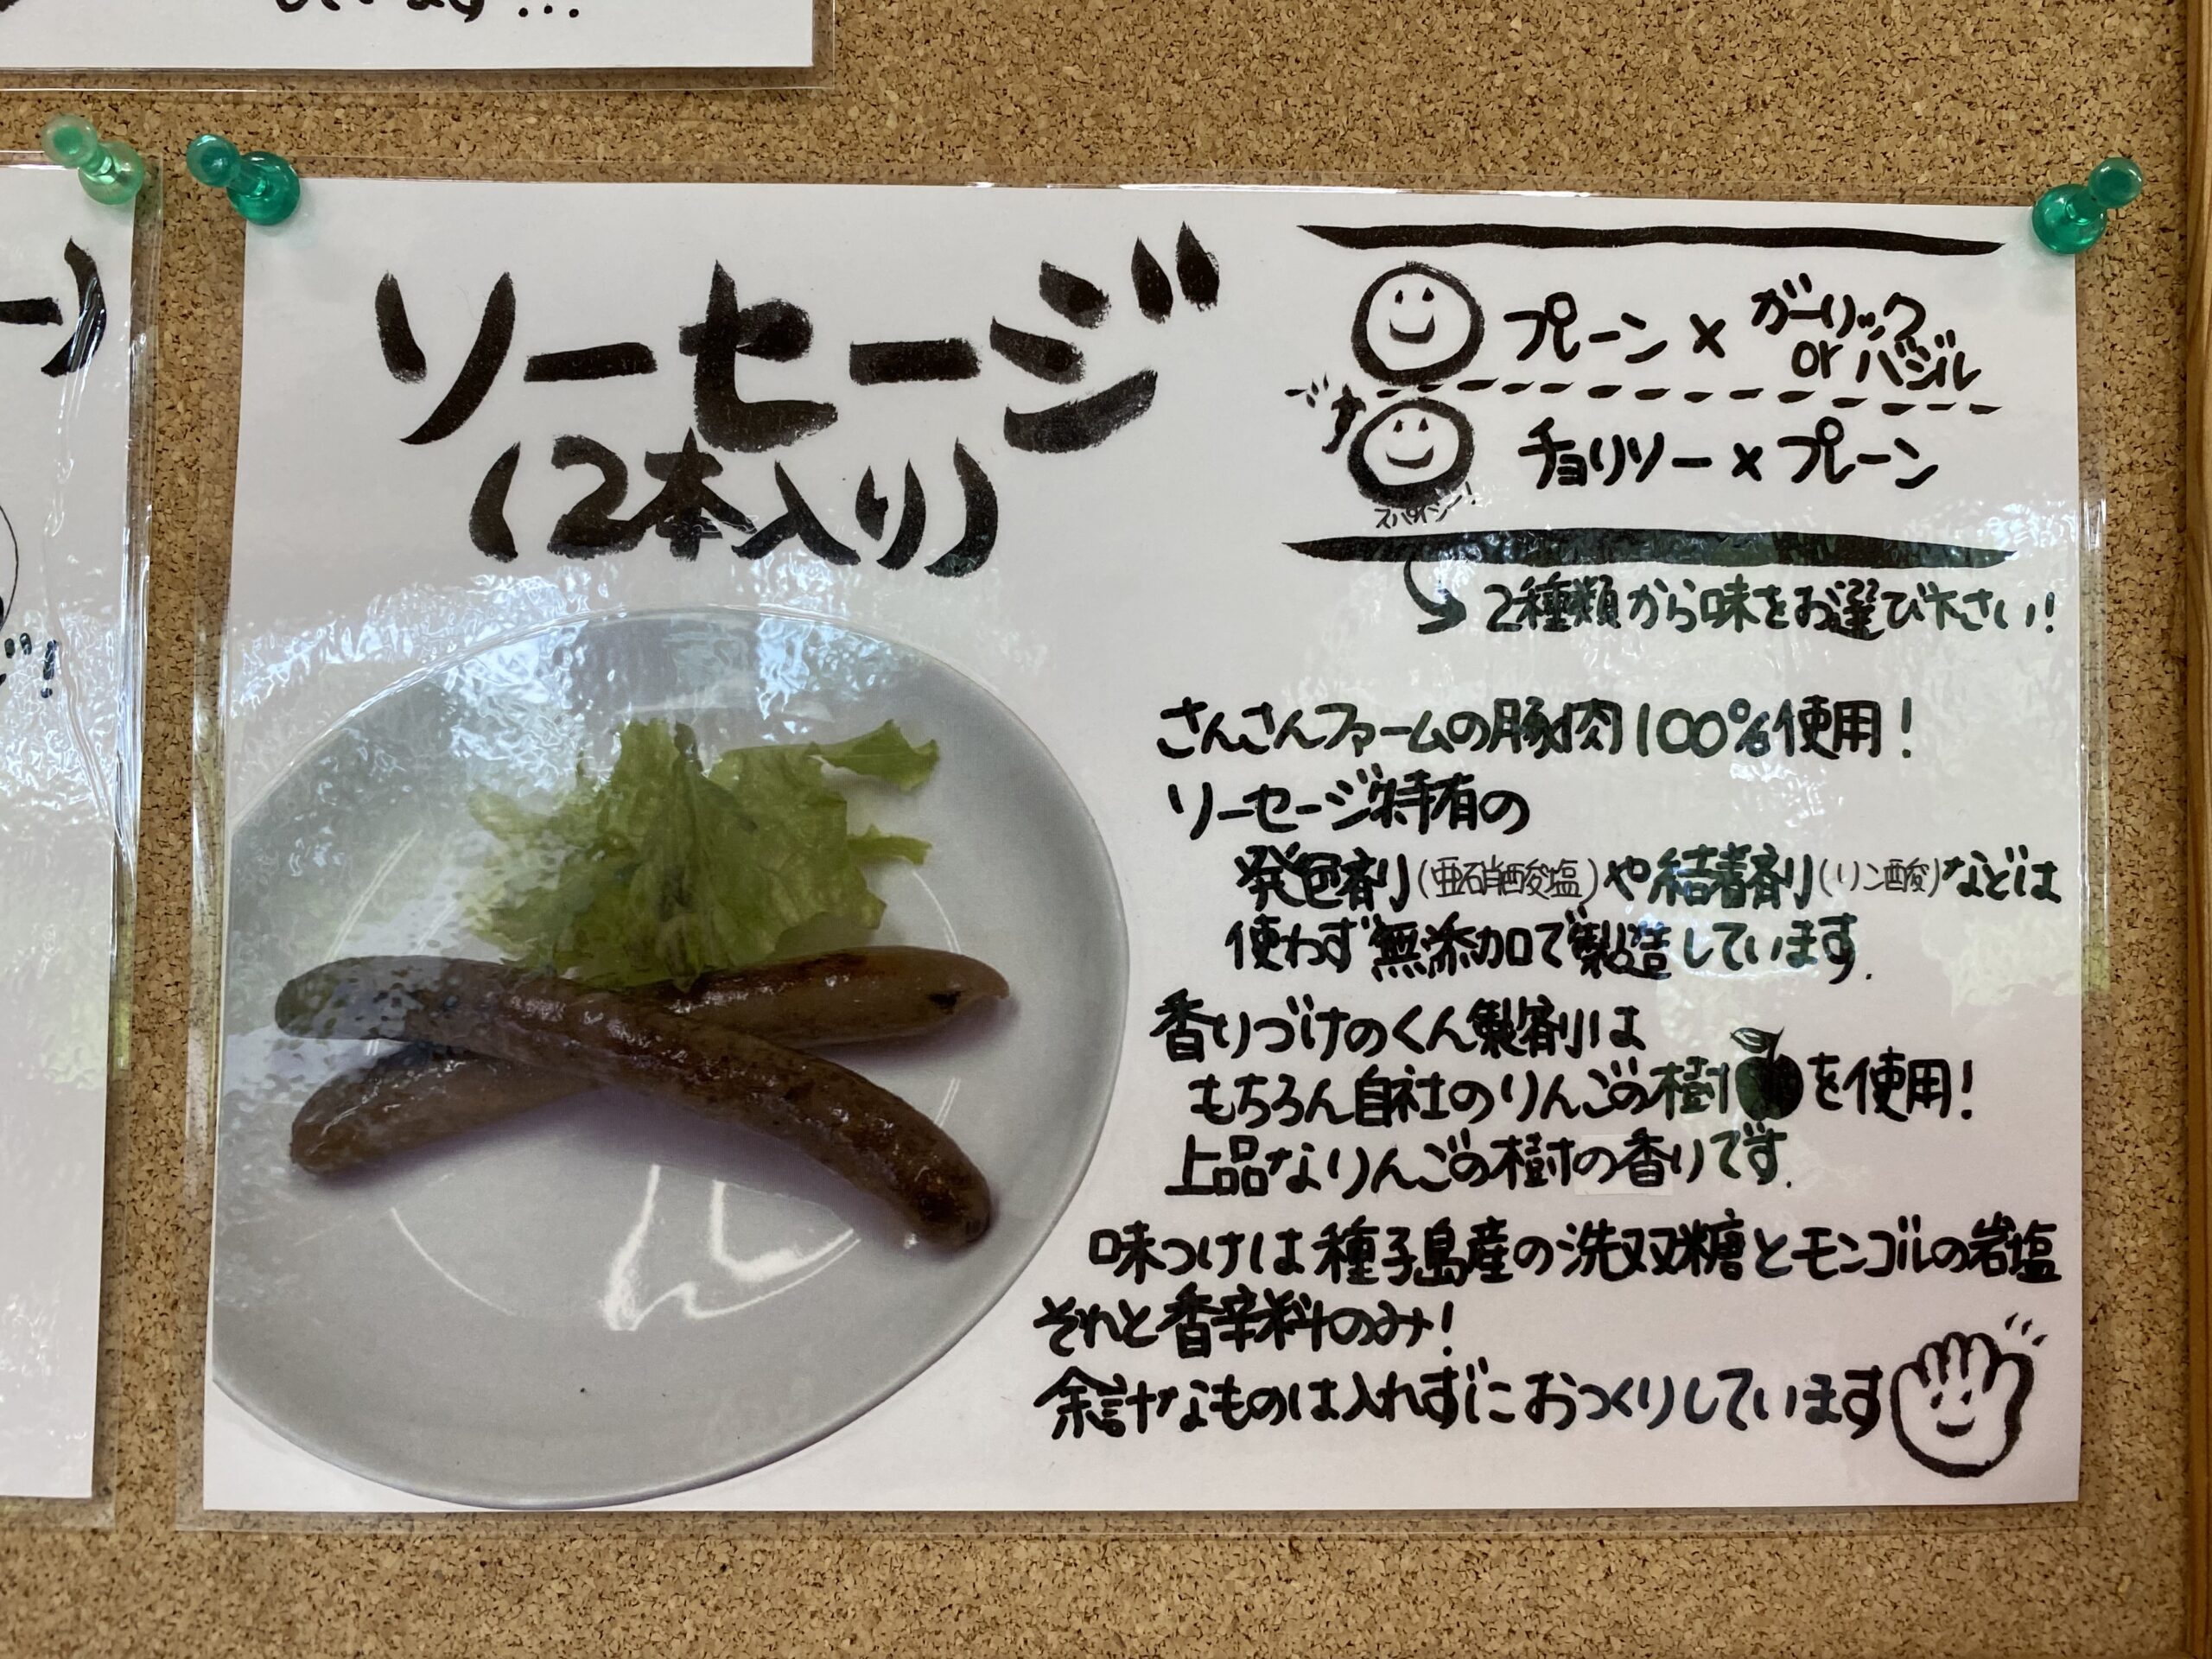 ています…
ソーセージ
(2本入り)
プレーン×ガーリック
or バジル
チョリソー×プレーン
スパイシー!
2種類から味をお選び下さい!
さんさんファームの豚肉100%使用!
ソーセージ特有の
発色剤(亜硝酸塩)や結着剤(リン酸)などは
使わず無添加で製造しています.
香りづけのくん製剤は
もちろん自社のりんごの樹を使用!
上品なりんごの樹の香りです.
味つけは種子島産の洗双糖とモンゴルの岩塩
それと香辛料のみ!
余計なものは入れずにおつくりしています